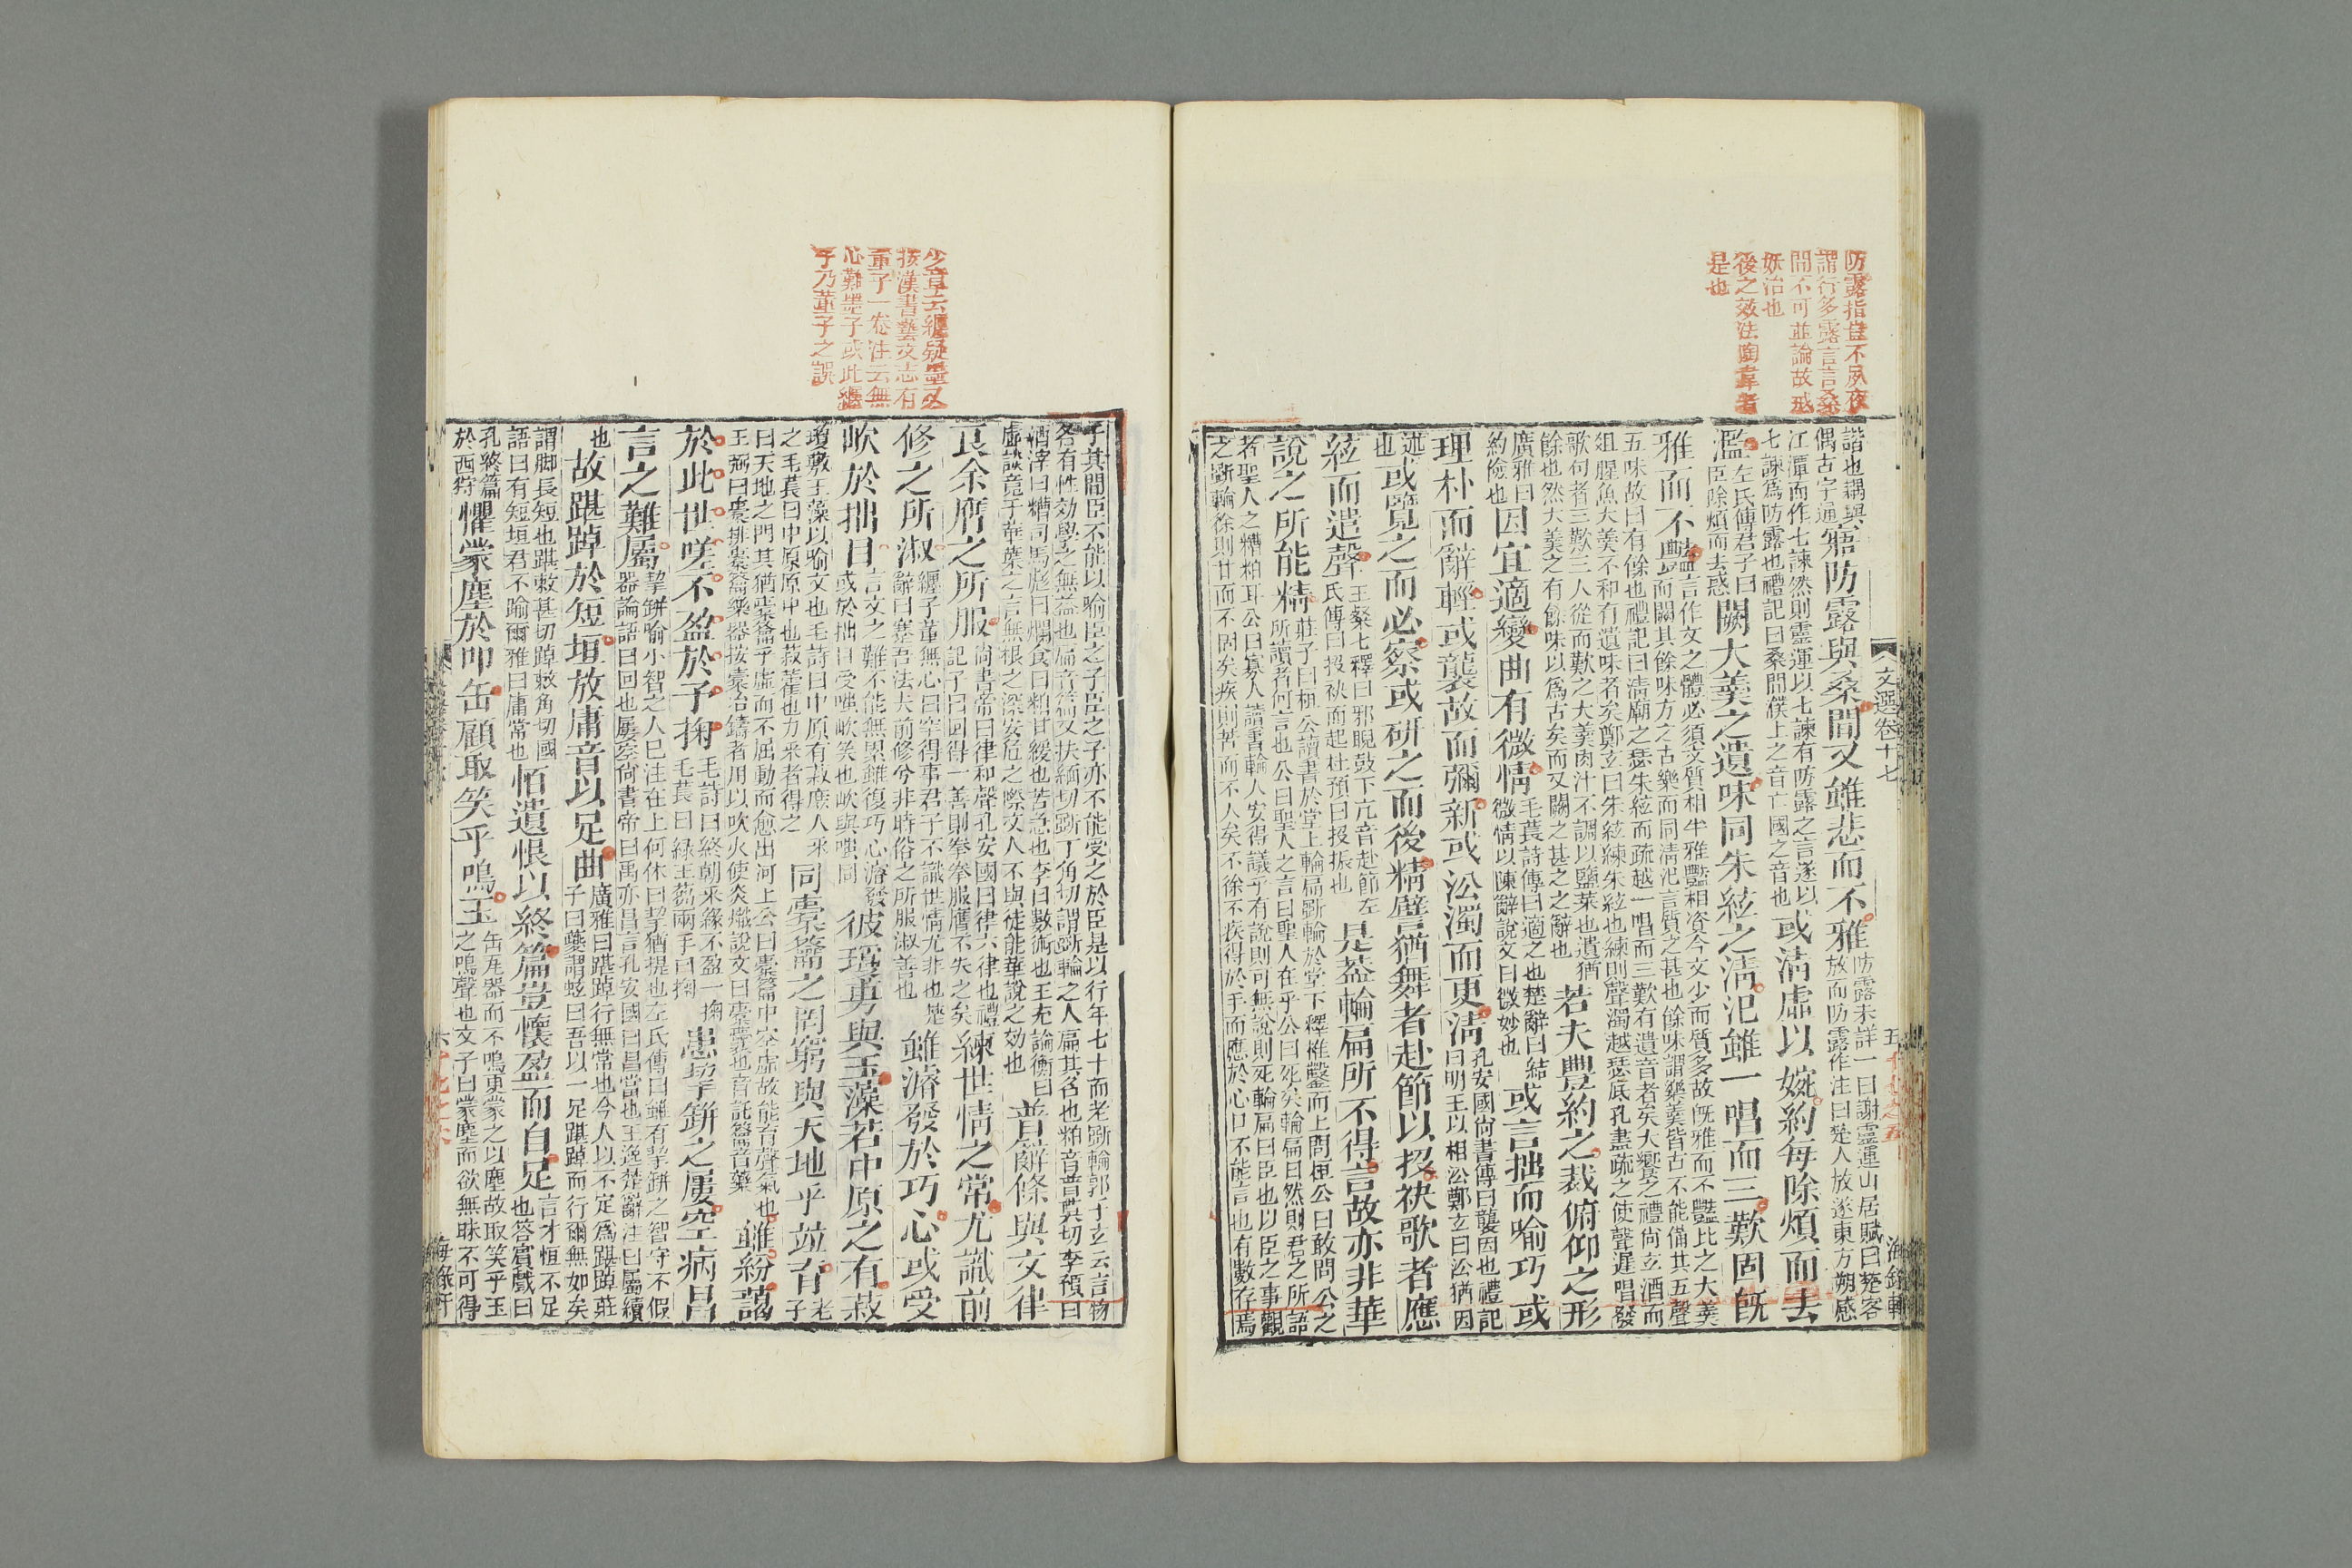 防露指豈不夙夜
謂行多露言言桑
間不可並論故戒
妖冶也
後之效法陶韋者
是也
文選卷十七
五
海錄軒
諧也耦與
偶古字通
寤防露與桑間又雖悲而不雅
防露未詳一曰謝靈運山居賦曰楚客
放而防露作注曰楚人放逐東方朔感
江潭而作七諫然則靈運以七諫有防露之言遂以
七諫爲防露也禮記曰桑間濮上之音亡國之音也
或淸虛以婉約每除煩而去
濫
左氏傳君子曰
臣除煩而去惑
闕大羹之遺味同朱絃之淸汜雖一唱而三歎固旣
雅而不豔
言作文之體必須文質相半雅豔相資今文少而質多故旣雅而不豔比之大羹
而闕其餘味方之古樂而同淸汜言質之甚也餘味謂樂羹皆古不能備其五聲
五味故曰有餘也禮記曰淸廟之瑟朱絃而疏越一唱而三歎有遺音者矣大饗之禮尙玄酒而
俎腥魚大羹不和有遺味者矣鄭玄曰朱絃練朱絃也練則聲濁越瑟底孔畫疏之使聲遲唱發
歌句者三歎三人從而歎之大羹肉汁不調以鹽菜也遺猶
餘也然大羹之有餘味以爲古矣而又闕之甚之之辭也
若夫豐約之裁俯仰之形
因宜適變曲有微情
廣雅曰
約儉也
毛萇詩傳曰適之也楚辭曰結
微情以陳辭說文曰微妙也
或言拙而喻巧或
理朴而辭輕或襲故而彌新或沿濁而更淸
孔安國尙書傳曰襲因也禮記
曰明王以相沿鄭玄曰沿猶因
述
也
或覽之而必察或硏之而後精譬猶舞者赴節以投袂歌者應
絃而遣聲
王粲七釋曰邪睨鼓下亢音赴節左
氏傳曰投袂而起杜預曰投振也
是葢輪扁所不得言故亦非華
說之所能精
莊子曰桓公讀書於堂上輪扁斲輪於堂下釋椎鑿而上問桓公曰敢問公之
所讀者何言也公曰聖人之言曰聖人在乎公曰死矣輪扁曰然則君之所語
者聖人之糟粕耳公曰寡人讀書輪人安得議乎有說則可無說則死輪扁曰臣也以臣之事觀
之斲輪徐則甘而不固矣疾則苦而不入矣不徐不疾得於手而應於心口不能言也有數存焉
少章云纏疑墨又
按漢書藝文志有
董子一卷注云無
心難墨子或此纏
子乃董子之誤
子其間臣不能以喻臣之子臣之子亦不能受之於臣是以行年七十而老斲輪郭子玄云言物
各有性効學之無益也扁音篇又扶緬切斲丁角切謂斲輪之人扁其名也粕音普莫切李頤曰
酒滓曰糟司馬彪曰爛食曰粕甘緩也苦急也李曰數術也王充論衡曰
虛談竟于華葉之言無根之深安危之際文人不與徒能華說之効也
普辭條與文律
良余膺之所服
尙書帝曰律和聲孔安國曰律六律也禮
記子曰回得一善則拳拳服膺不失之矣
練世情之常尤識前
修之所淑
纏子董無心曰罕得事君子不識世情尤非也楚
辭曰謇吾法夫前修兮非時俗之所服淑善也
雖濬發於巧心或受
㰞於拙目
言文之難不能無累雖復巧心濬發
或於拙目受嗤㰞笑也㰞與嗤同
彼瓊敷與玉藻若中原之有菽
瓊敷玉藻以喻文也毛詩曰中原有菽庶人采
之毛萇曰中原原中也菽藿也力采者得之
同橐籥之罔窮與天地乎竝育
老
子
曰天地之門其猶橐籥乎虛而不屈動而愈出河上公曰橐籥中空虛故能育聲氣也
王弼曰橐排橐籥樂器按橐冶鑄者用以吹火使炎熾說文曰橐囊也音託籥音藥
雖紛藹
於此世嗟不盈於予掬
毛詩曰終朝采綠不盈一掬
毛萇曰綠王芻兩手曰掬
患挈缾之屢空病昌
言之難屬
挈缾喻小智之人巳注在上何休曰挈猶提也左氏傳曰雖有挈缾之智守不假
器論語曰回也屢空尙書帝曰禹亦昌言孔安國曰昌當也王逸楚辭注曰屬續
也
故踸踔於短垣放庸音以足曲
廣雅曰踸踔行無常也今人以不定爲踸踔莊
子曰夔謂蚿曰吾以一足踸踔而行爾無如矣
謂脚長短也踸敕甚切踔敕角切國
語曰有短垣君不踰爾雅曰庸常也
恒遺恨以終篇豈懷盈而自足
言才恒不足
也答賓戲曰
孔終篇
於西狩
懼蒙塵於叩缶顧取笑乎鳴玉
缶瓦器而不鳴更蒙之以塵故取笑乎玉
之鳴聲也文子曰蒙塵而欲無眯不可得
海錄軒